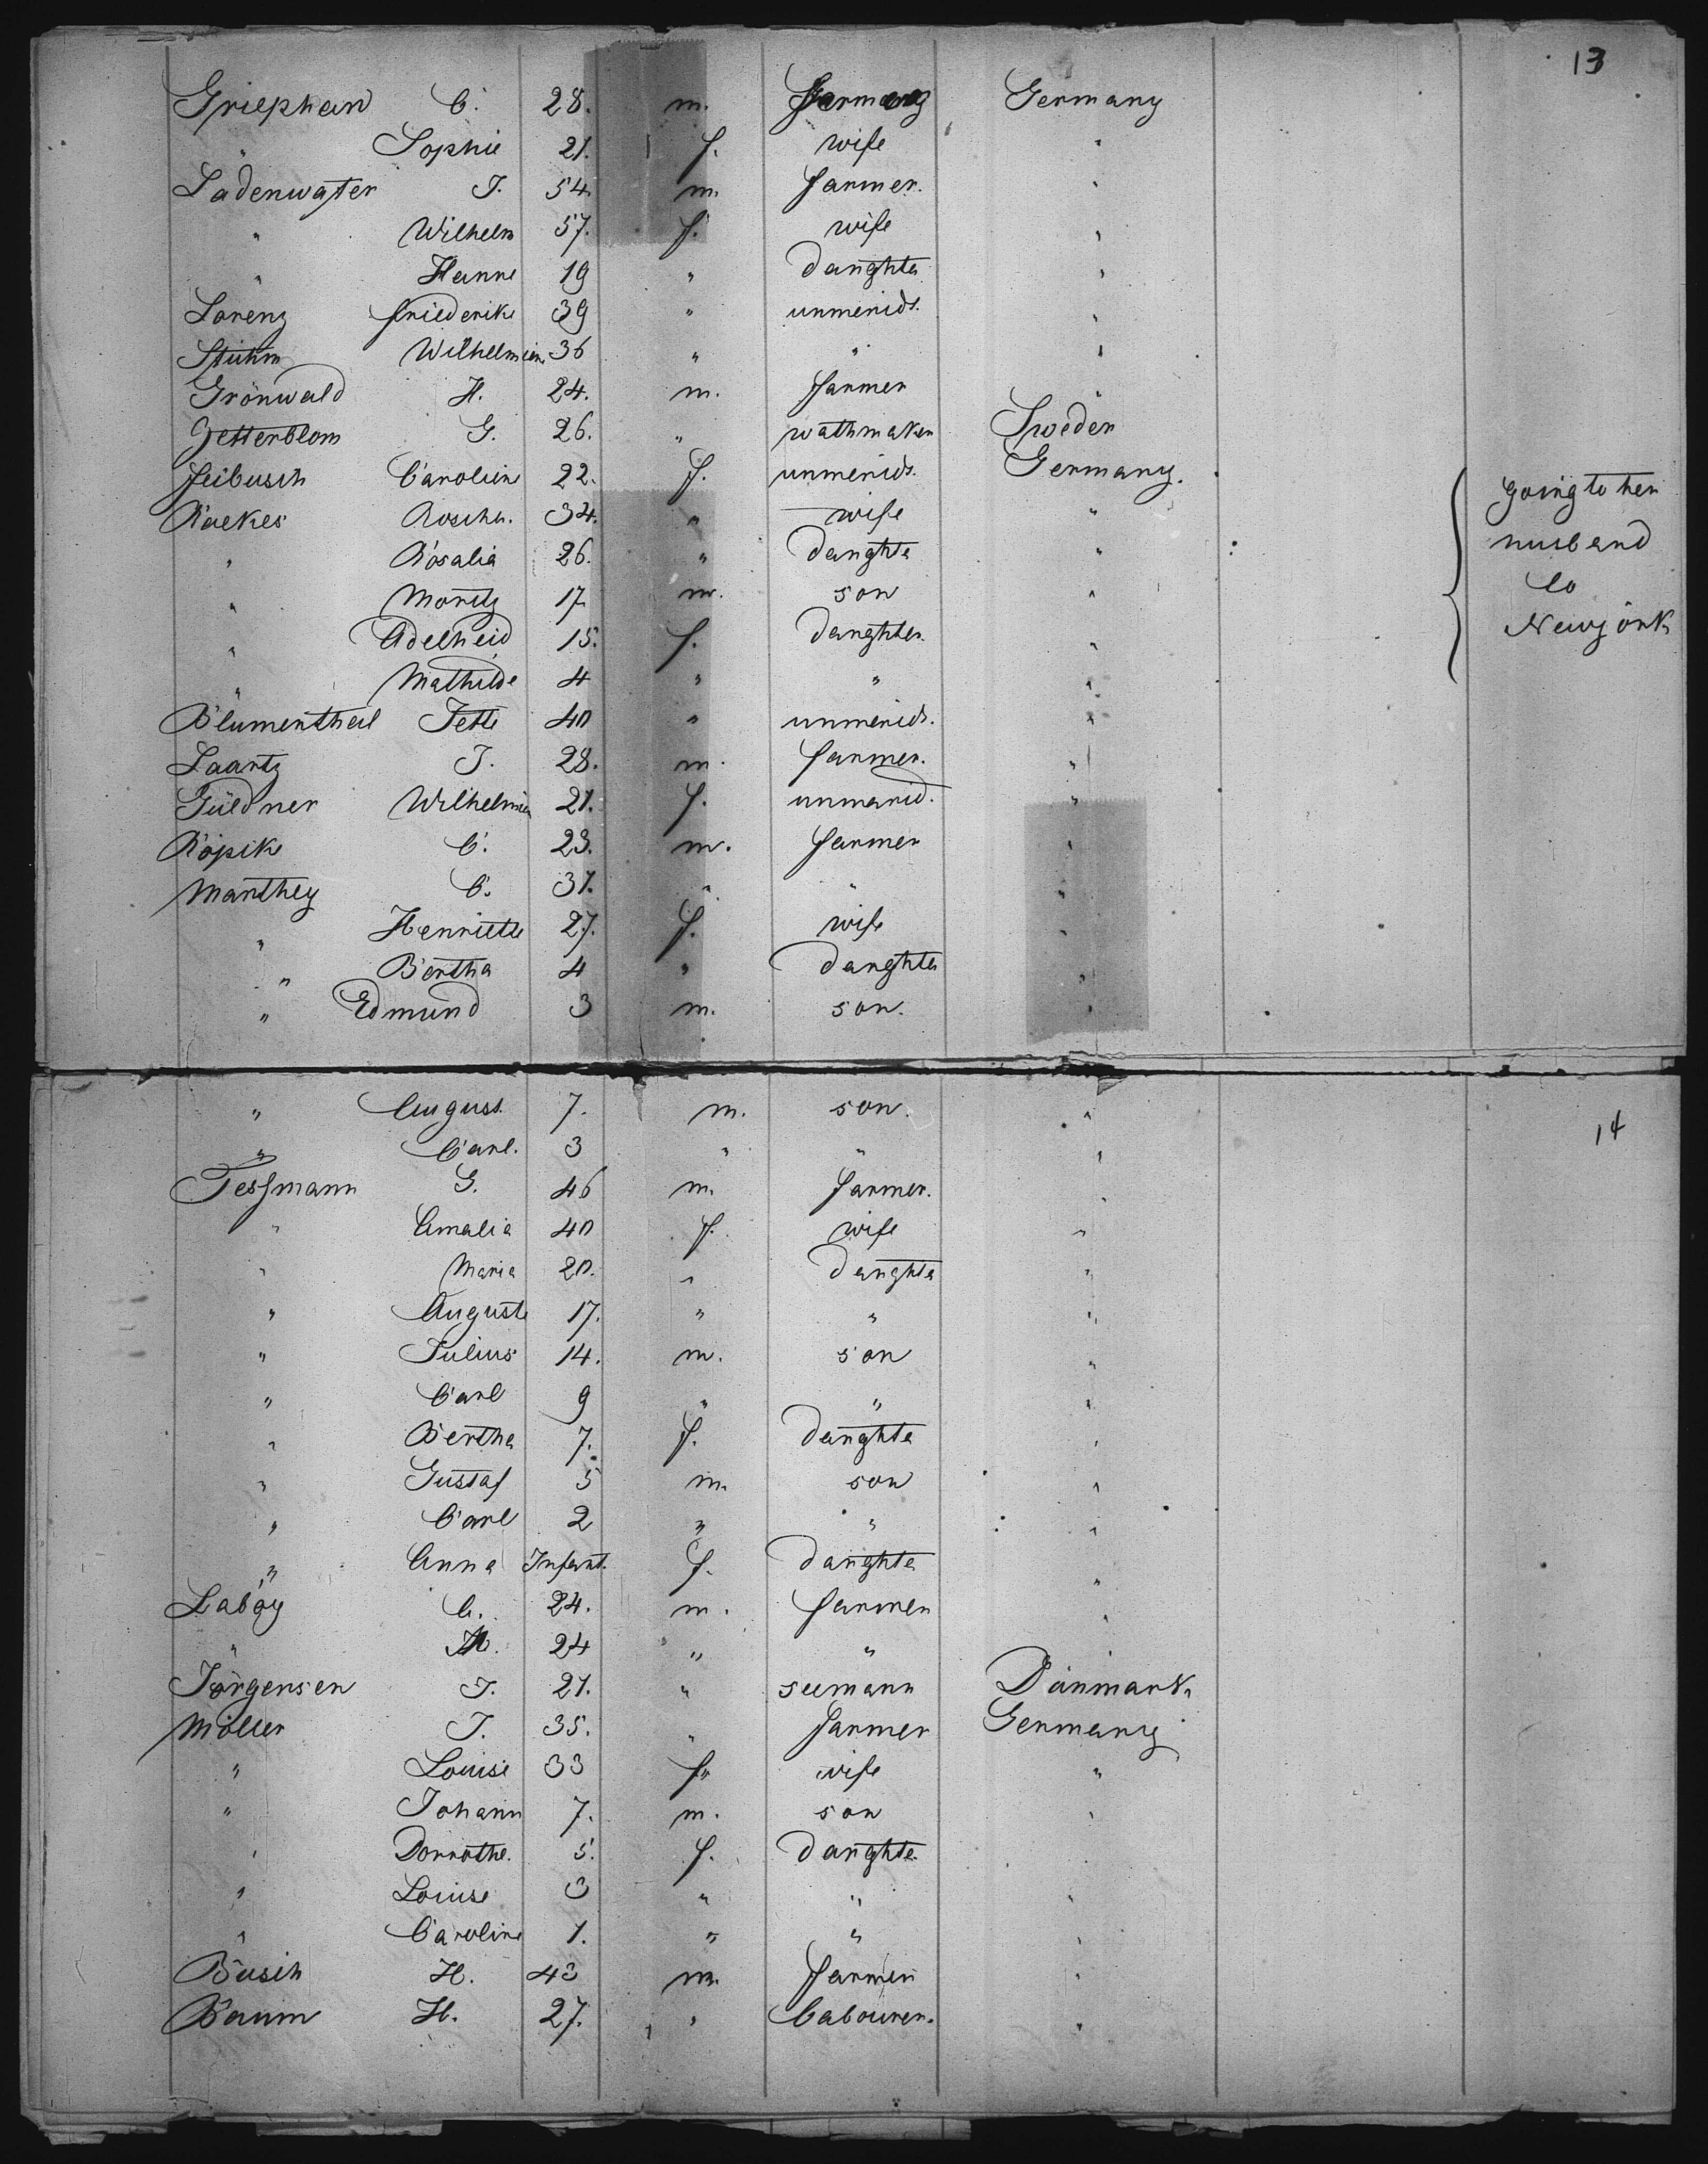 13
Griephan C. 28. m. Farmer Germany
" Sophie 21. f. wife "
Ladenwater J. 54. m. farmer. "
" Wilhelm 57. f. wife "
" Hanne 19 " daughte "
Lorenz Friederike 39 " unmerids. "
Stuhm Wilhelmien 36 " " "
Grönwald H. 24. m. farmer "
Zetterblom G. 26. " wathmaker Sweden
Feibusch Caroline 22. f. unmerids. Germany.
Raekes Roscha. 34. " wife " going to her
" Rosalia 26. " daughte " husband
" Moritz 17 m. son " to
" Adelheid 15. f. daughter. " Newyork
" Mathilde 4 " " "
Blumentheil Jette 40 " unmerids. "
Laartz J. 28. m. farmer. "
Güldner Wilhelmien 21. f. unmarid. "
Röpike C. 23. m. farmer "
Manthey C. 31. " " "
" Henriette 27. f. wife "
" Bertha 4 " daughte "
" Edmund 3 m. son. "
14
" August 7. m. son. "
" Carl. 3 " " "
Tessmann G. 46 m. farmer. "
" Amalia 40 f. wife "
" Maria 20. " daughte "
" Auguste 17. " " "
" Julius 14. m. son "
" Carl 9 " " "
" Bertha 7. f. daughte "
" Gustaf 5 m. son "
" Carl 2 " " "
" Anna Infant. f. daughte "
Laboy C. 24. m. farmer "
" 24 " " "
Jörgensen J. 21. " seemann Danmark
Möller J. 35. " farmer Germany
" Louise 33 f. wife "
" Johann 7. m. son "
" Dorrothe. 5. f. daughte.
" Louise 3 " " "
" Caroline 1. " " "
Busch H. 43 m. farmer "
Baum H. 27. " Labourer. "